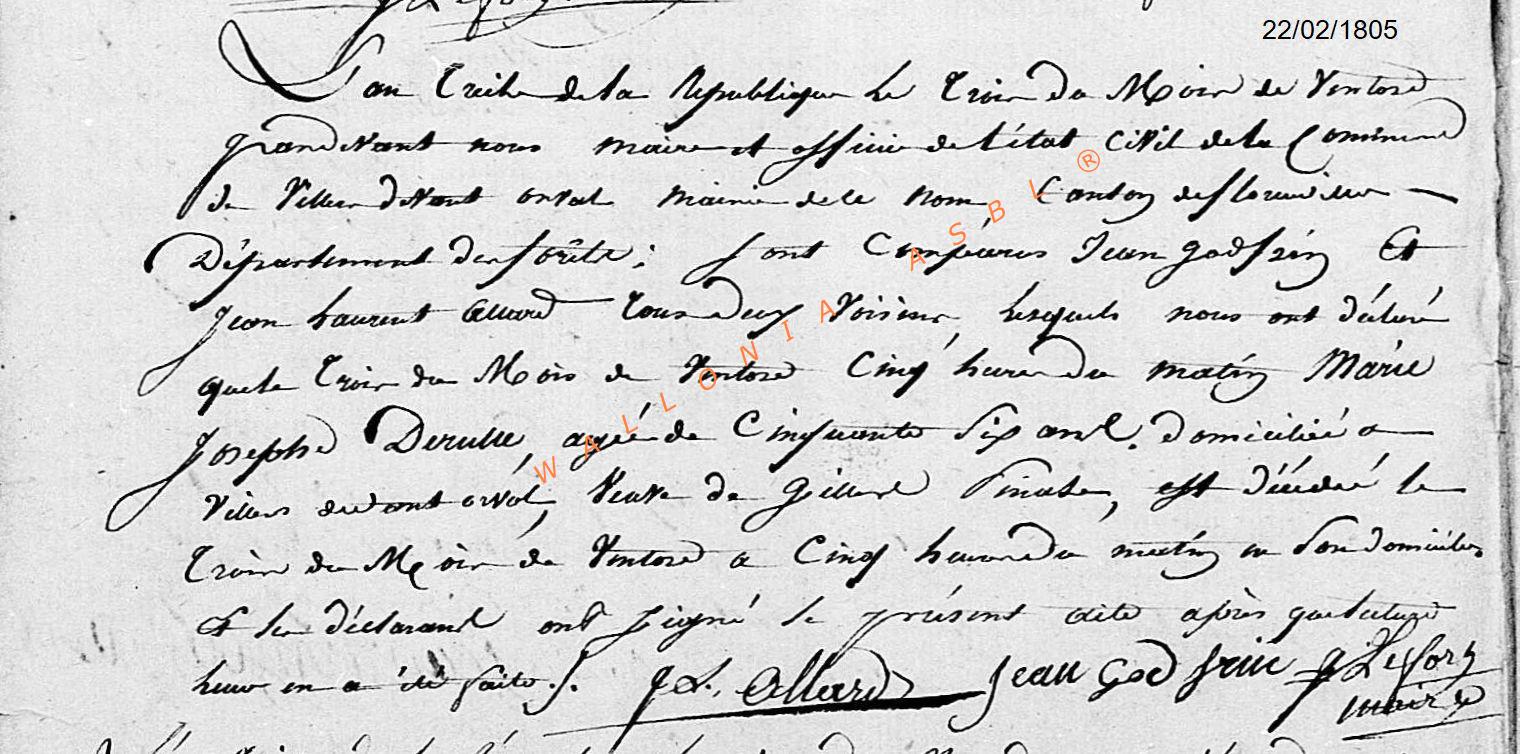 22/02/1805
L'an treize de la Republique le trois du Mois de Ventose
pardevant nous maire et officie de l'état civil de la Commune
de Villers devant orval mairie de le nom Canton de florenville
Département des forêts; sont Comparus Jean godfrin Et
Jean Laurent Allard tous deux Voisins, lesquels nous ont déclaré
que le trois du Mois de Ventose Cinq heure du matin Marie
Josephe Derulle, agée de Cinquante Six ans. domiciliée a
Villers devant orval, Veuve de gillard, est décédé le
trois du Mois de Ventose a Cinq heure du matin en Son domicile
et les déclarant ont signé le présent acte après que lecture
leur en a été faite ./. J L. Allard Jean God frin Lefort
maire
WALLONIA ASBL ®